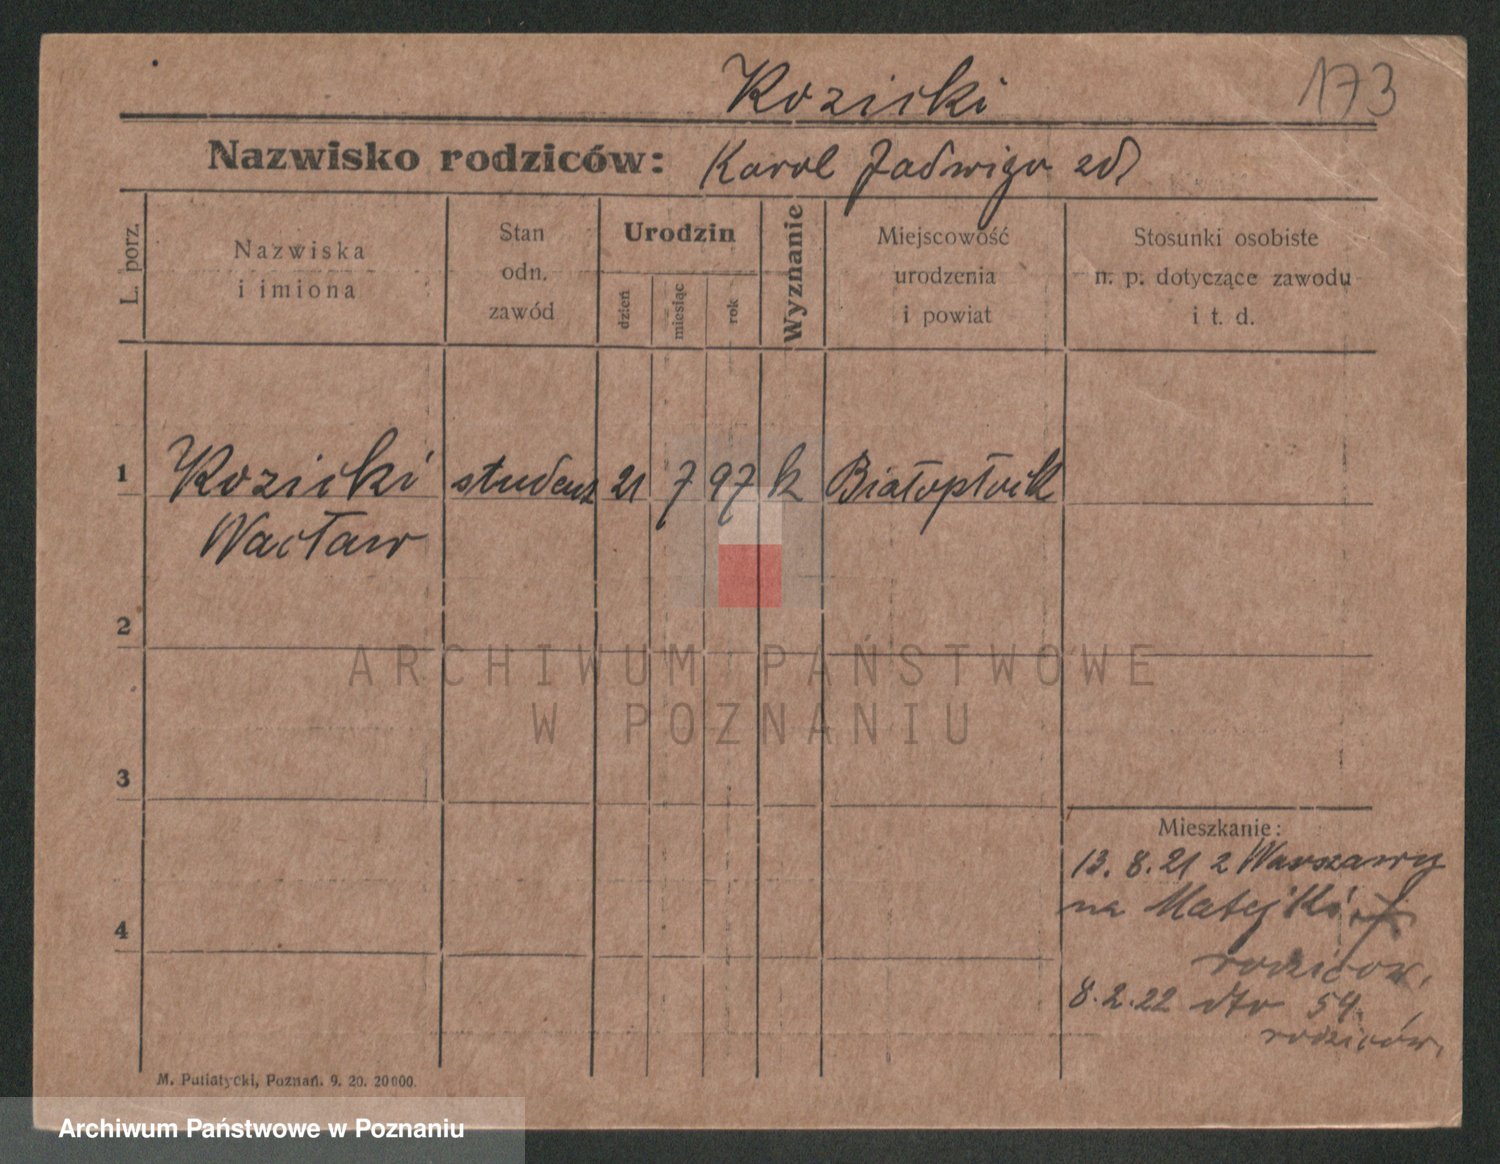 Kozicki
173
Nazwisko rodziców: Karol Jadwiga
L. porz.
Nazwiska
i imiona
Stan
odn.
zawód
Urodzin
dzień
miesiąc
rok
Wyznanie
Miejscowość
urodzenia
i powiat
Stosunki osobiste
n. p. dotyczące zawodu
i t. d.
1
Kozicki
Wacław
student
21
7
97
k
2
3
4
Mieszkanie:
13. 8. 21 z Warszawy
na Matejki
rodzicow.
8. 2. 22 dto
rodziców.
M. Putiatycki, Poznań. 9. 20. 20000.
ARCHIWUM PAŃSTWOWE
W POZNANIU
Archiwum Państwowe w Poznaniu